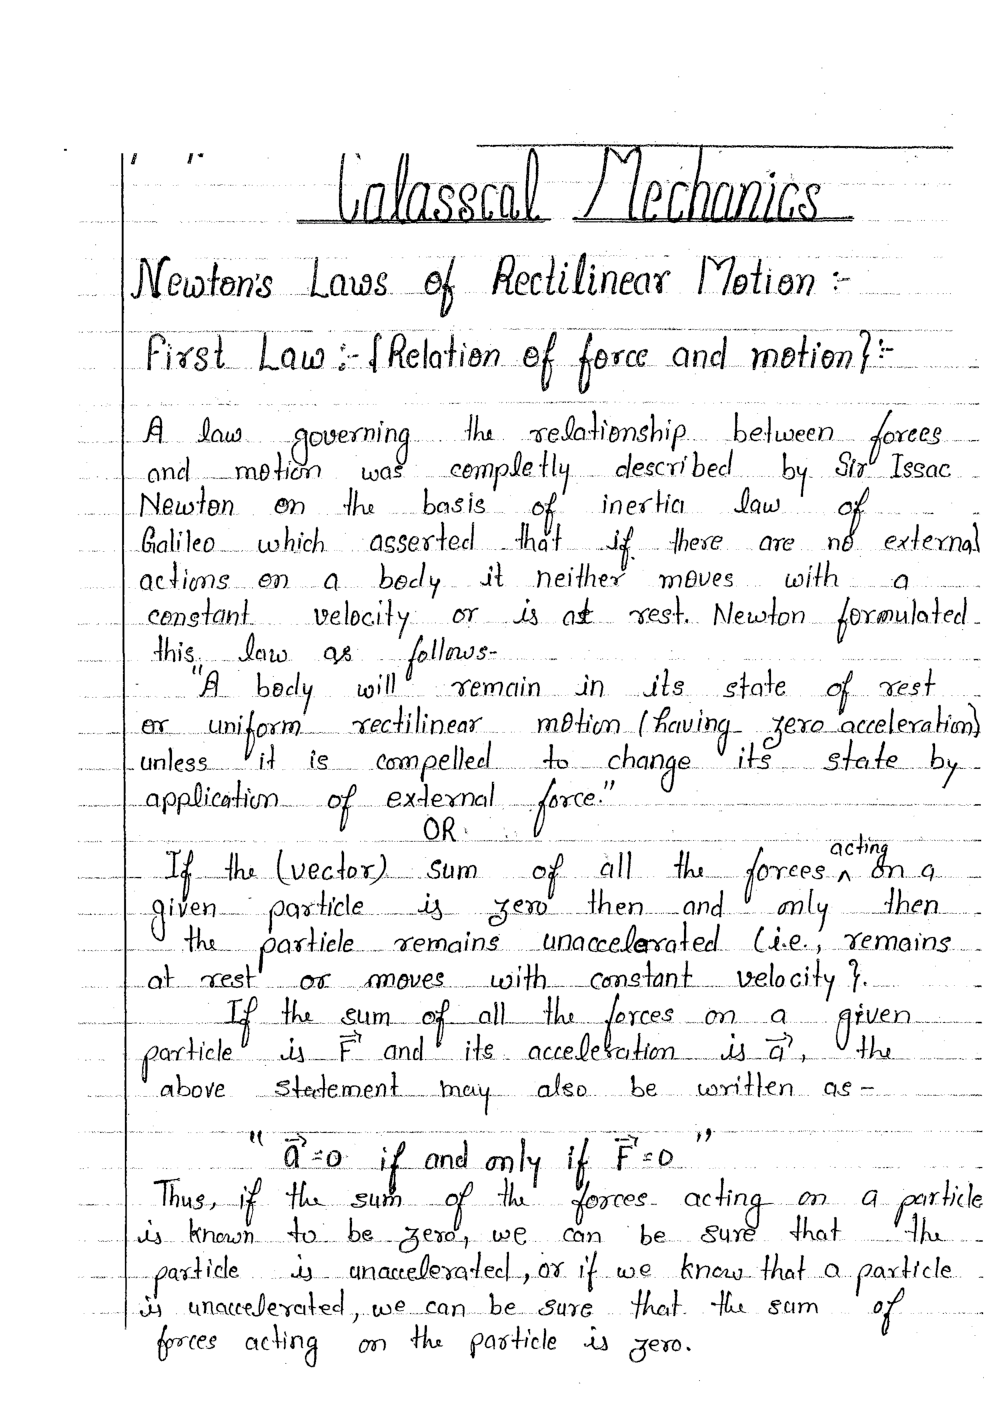 Calasscal Mechanics
Newton's Laws of Rectilinear Motion :-
First Law :- {Relation of force and motion} :-
A law governing the relationship between forces
and motion was completly described by Sir Issac
Newton on the basis of inertia law of
Galileo which asserted that if there are no external
actions on a body it neither moves with a
constant velocity or is at rest. Newton formulated
this law as follows-
"A body will remain in its state of rest
or uniform rectilinear motion (having zero acceleration)
unless it is compelled to change its state by
application of external force."
OR
If the (vector) sum of all the forces acting on a
given particle is zero then and only then
the particle remains unaccelerated (i.e., remains
at rest or moves with constant velocity }.
If the sum of all the forces on a given
particle is F⃗ and its acceleration is a⃗, the
above statement may also be written as -
" a⃗=0 if and only if F⃗=0 "
Thus, if the sum of the forces acting on a particle
is known to be zero, we can be sure that the
particle is unaccelerated, or if we know that a particle
is unaccelerated, we can be sure that the sum of
forces acting on the particle is zero.